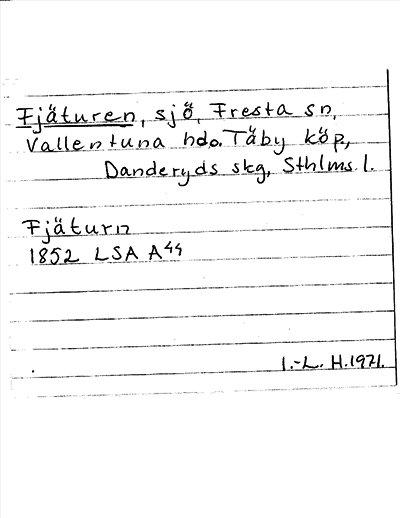 Fjäturen, sjö, Fresta sn,
Vallentuna hdo. Täby köp,
Danderyds skg, Sthlms l.
Fjäturn
1852 LSA A44
I.-L. H. 1971.